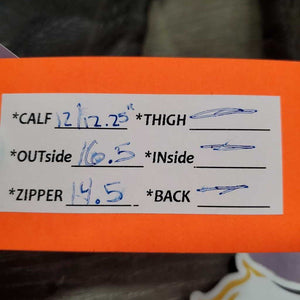 *CALF 12/12.25" *THIGH
*OUTside 16.5 *INside
*ZIPPER 14.5 *BACK